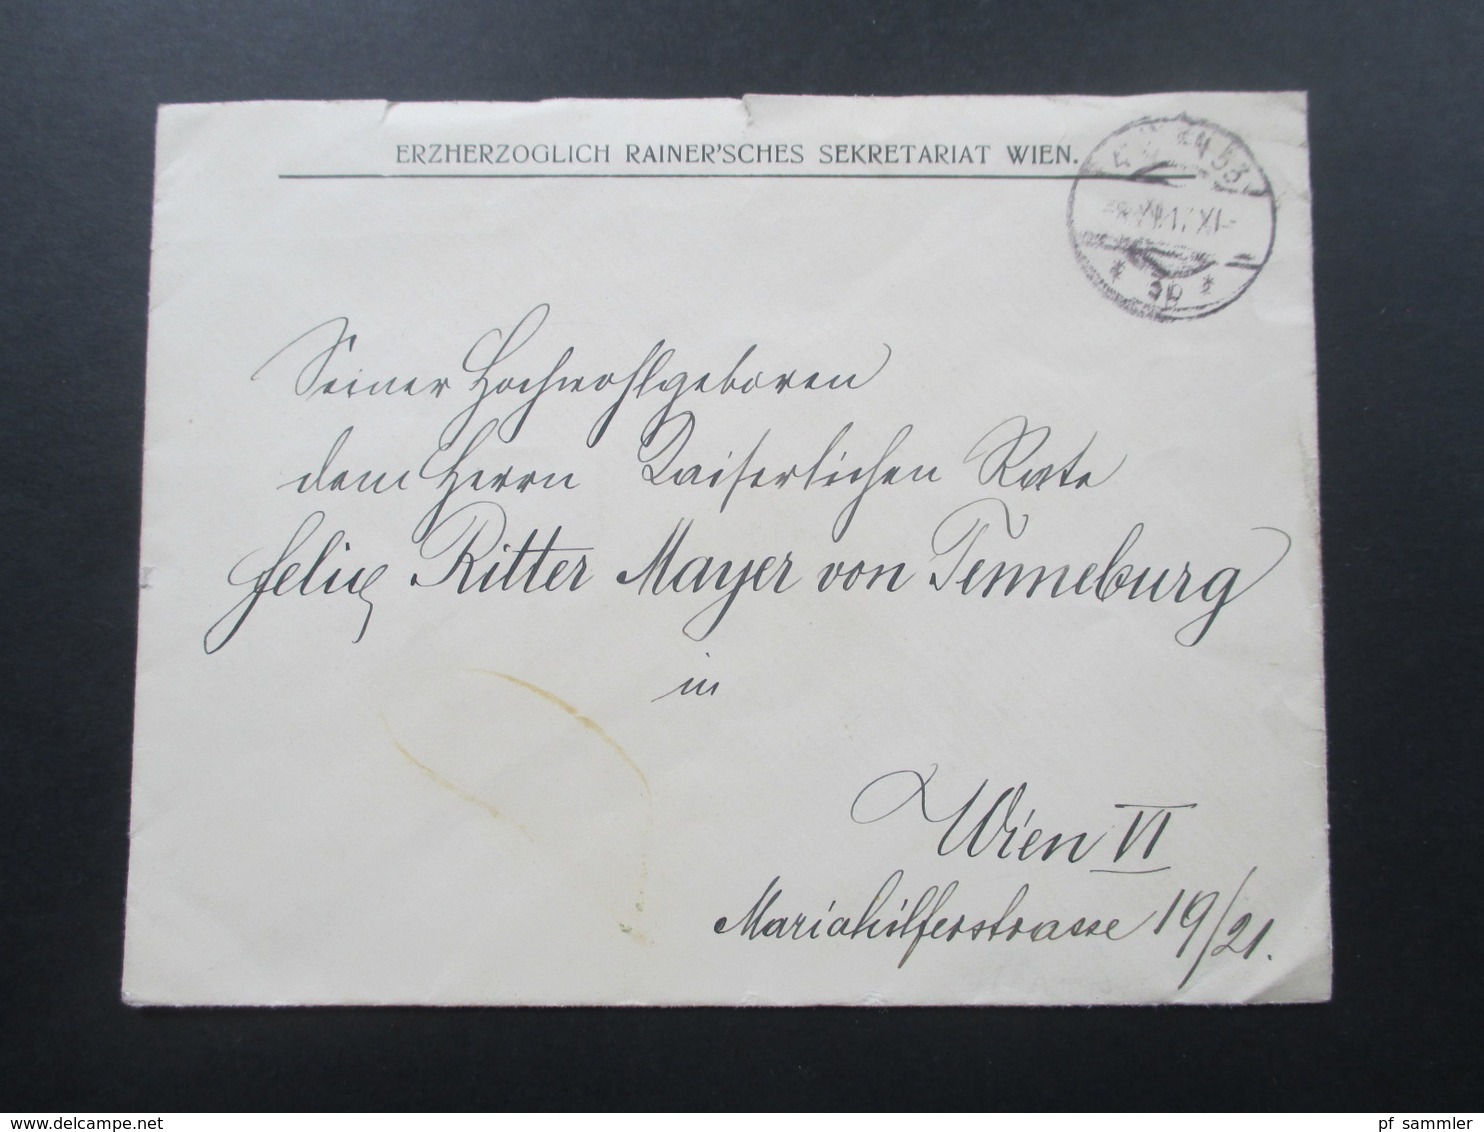 ERZHERZOGLICH RAINER'SCHES SEKRETARIAT WIEN.
WIEN 53
XI
Seiner Hochwohlgeboren
dem Herrn Kaiserlichen Rate
Felix Ritter Mayer von Tenneburg
in
Wien VI
Mariahilferstrasse 19/21.
www.delcampe.net
pf_sammler